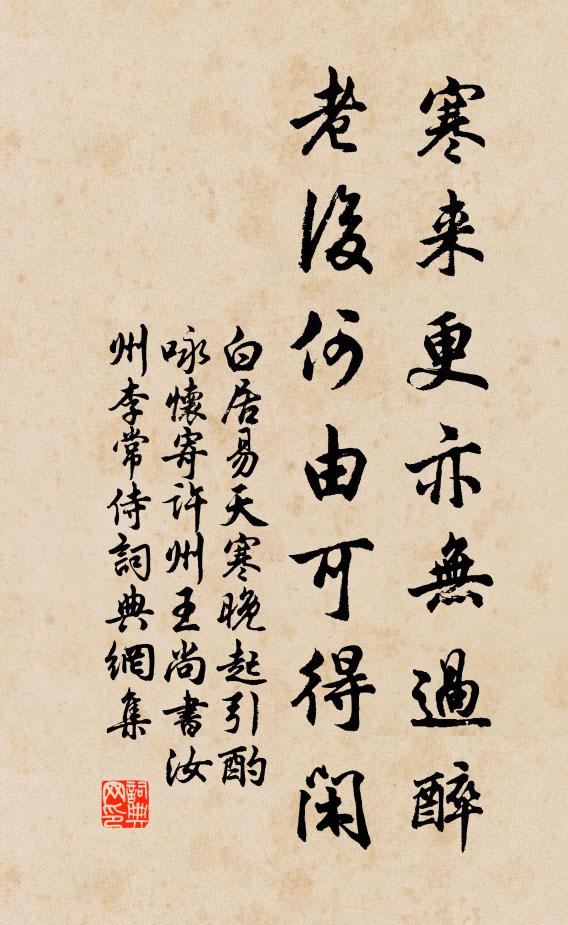 寒来更亦無過醉
老後何由可得闲
白居易天寒晚起引酌
咏懷寄許州王尚書汝
州李常侍詞典網集
詞典
网印